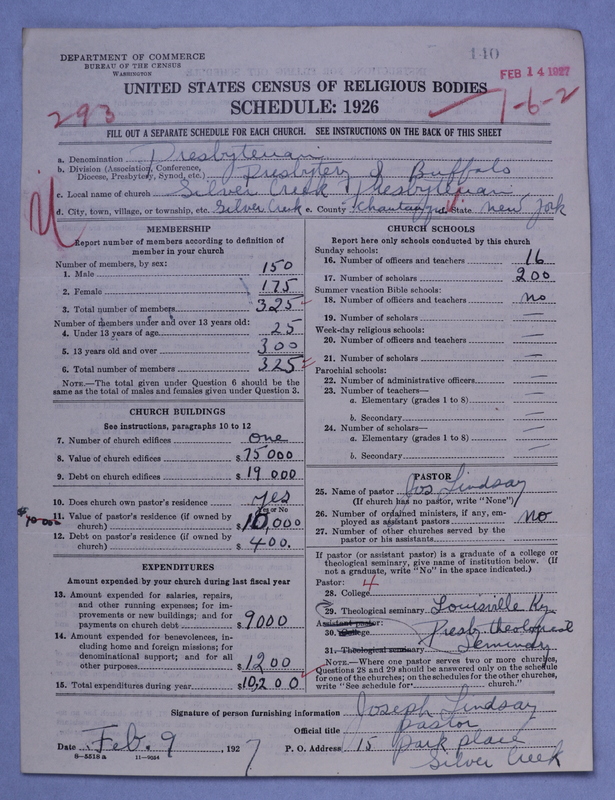 DEPARTMENT OF COMMERCE
BUREAU OF THE CENSUS
WASHINGTON
140
FEB 14 1927
UNITED STATES CENSUS OF RELIGIOUS BODIES
SCHEDULE: 1926
293
1-6-2
FILL OUT A SEPARATE SCHEDULE FOR EACH CHURCH. SEE INSTRUCTIONS ON THE BACK OF THIS SHEET
a. Denomination Presbyterian
b. Division (Association, Conference, Diocese, Presbytery, Synod, etc.) Presbytery of Buffalo
c. Local name of church Silver Creek Presbyterian
d. City, town, village, or township, etc. Silver Creek e. County Chautauqua State New York
MEMBERSHIP
Report number of members according to definition of
member in your church
Number of members, by sex:
1. Male 150
2. Female 175
3. Total number of members 325
Number of members under and over 13 years old:
4. Under 13 years of age 25
5. 13 years old and over 300
6. Total number of members 325
NOTE.—The total given under Question 6 should be the
same as the total of males and females given under Question 3.
CHURCH BUILDINGS
See instructions, paragraphs 10 to 12
7. Number of church edifices one
8. Value of church edifices $ 75000
9. Debt on church edifices $ 19 000
10. Does church own pastor's residence yes
Yes or No
11. Value of pastor's residence (if owned by
church) $ 10,000
12. Debt on pastor's residence (if owned by
church) $ 400.
EXPENDITURES
Amount expended by your church during last fiscal year
13. Amount expended for salaries, repairs,
and other running expenses; for im-
provements or new buildings; and for
payments on church debt $ 9000
14. Amount expended for benevolences, in-
cluding home and foreign missions; for
denominational support; and for all
other purposes $ 1200
15. Total expenditures during year $ 10,200
CHURCH SCHOOLS
Report here only schools conducted by this church
Sunday schools:
16. Number of officers and teachers 16
17. Number of scholars 200
Summer vacation Bible schools:
18. Number of officers and teachers no
19. Number of scholars —
Week-day religious schools:
20. Number of officers and teachers —
21. Number of scholars —
Parochial schools:
22. Number of administrative officers —
23. Number of teachers—
a. Elementary (grades 1 to 8) —
b. Secondary —
24. Number of scholars—
a. Elementary (grades 1 to 8) —
b. Secondary —
PASTOR
25. Name of pastor Jos Lindsay
(If church has no pastor, write "None")
26. Number of ordained ministers, if any, em-
ployed as assistant pastors no
27. Number of other churches served by the
pastor or his assistants
If pastor (or assistant pastor) is a graduate of a college or
theological seminary, give name of institution below. (If
not a graduate, write "No" in the space indicated.)
Pastor: 4
28. College
29. Theological seminary Louisville Ky
Assistant pastor:
30. College Presb. Theological
31. Theological seminary Seminary
NOTE.—Where one pastor serves two or more churches,
Questions 28 and 29 should be answered only on the schedule
for one of the churches; on the schedules for the other churches,
write "See schedule for church."
Signature of person furnishing information Joseph Lindsay
Official title Pastor
Date Feb. 9, 1927 P. O. Address 15 Park place
Silver Creek
8—5518 a 11—9554